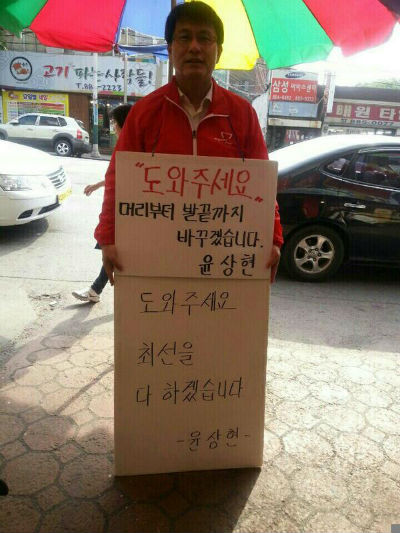 고기 파는 사람들!
T.88 -2223
삼성
SAMSUNG
"도와주세요"
머리부터 발끝까지
바꾸겠습니다.
윤상현
도와주세요
최선을
다 하겠습니다
-윤상현-